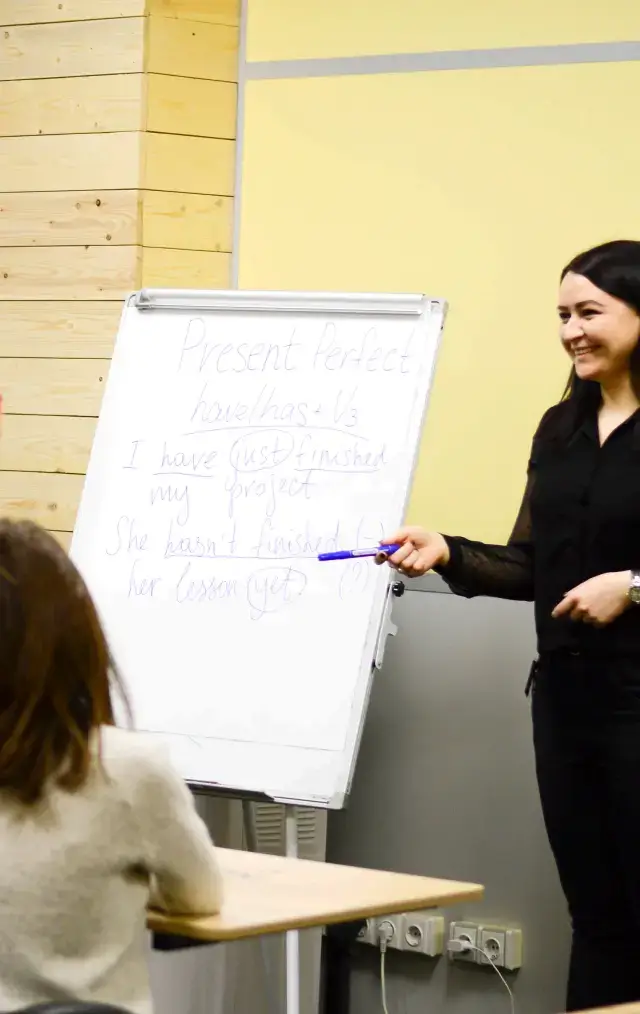 Present Perfect
have/has + V3
I have just finished
my project
She hasn't finished (-)
her lesson yet. (?)